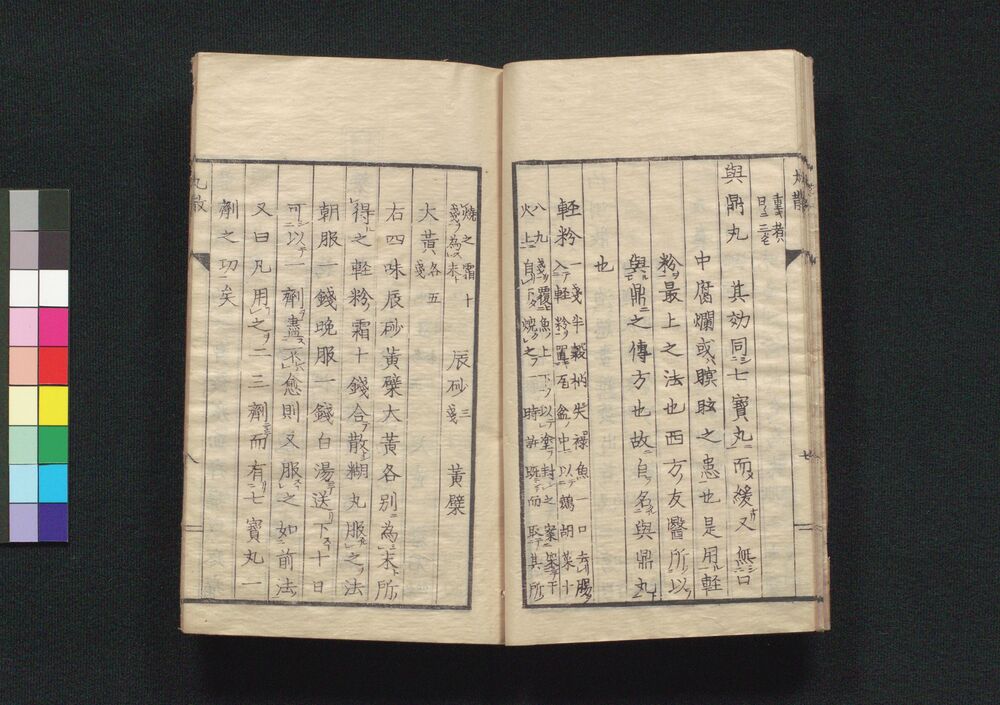 與鼎丸 其効同七寶丸而緩又無口
中腐爛或瞑眩之患也是用輕
粉最上之法也西方友醫所以
與鼎之傳方也故自名與鼎丸
也
輕粉 一戔半
入輕粉置瓦盆中以
八九戔覆魚上下以塗封之
火上自下燒之 時許既而取其所
燒之霜十
戔為末 辰砂 三戔 黄蘗
大黄 各五戔
右四味辰砂黄蘗大黄各別為末所
得之輕粉霜十錢合散糊丸服之法
朝服一錢晚服一錢白湯送下十日
可以一劑盡不愈則又服之如前法
又曰凡用之二三劑而有七寶丸一
劑之功矣
丸散
八